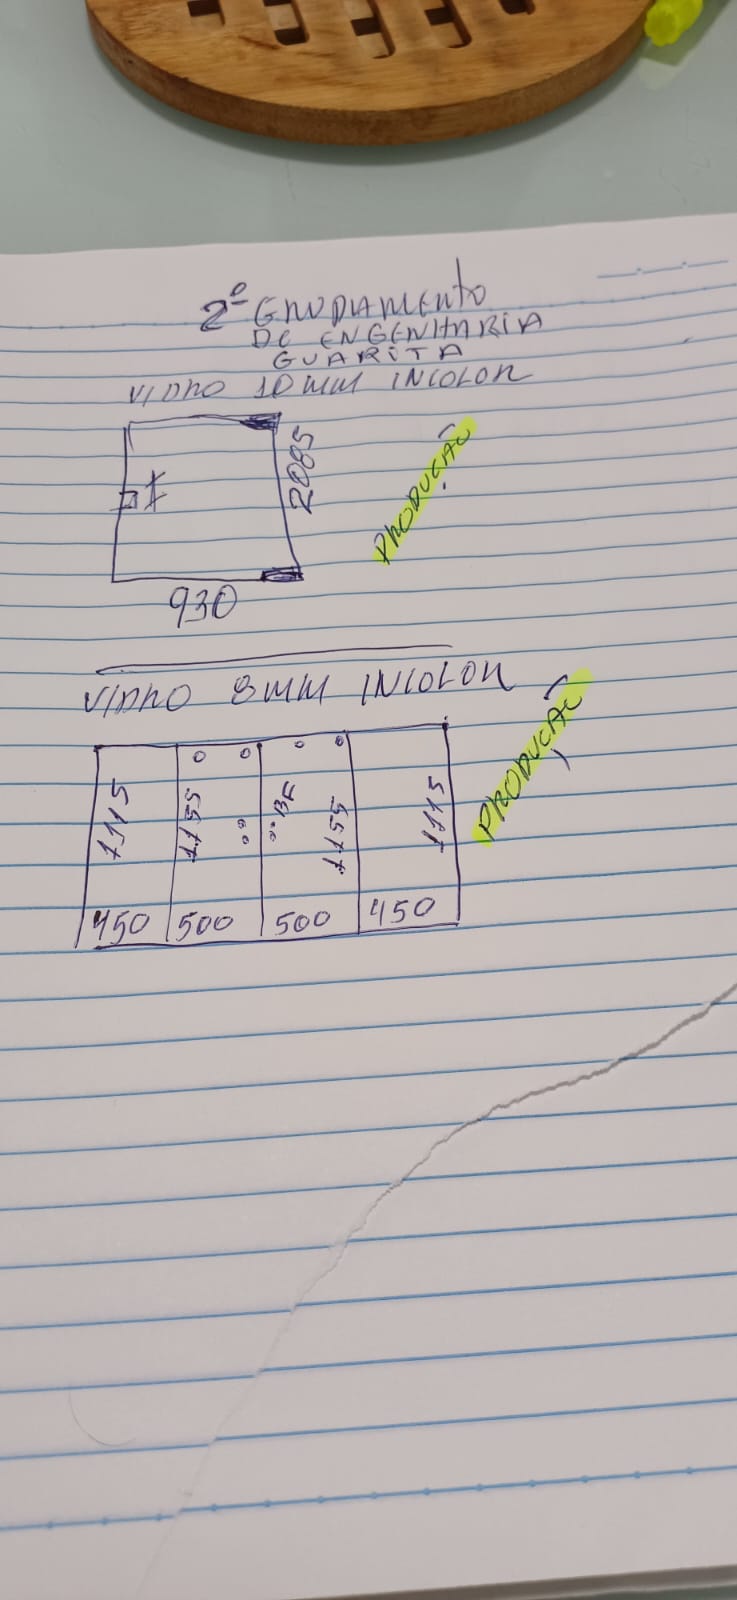 2º GRUPAMENTO
DE ENGENHARIA
GUARITA
VIDRO 10MM INCOLOR
2085
PRODUÇÃO
930
VIDRO 8MM INCOLOR
PRODUÇÃO
1115
1155
BF
1155
1115
450
500
500
450